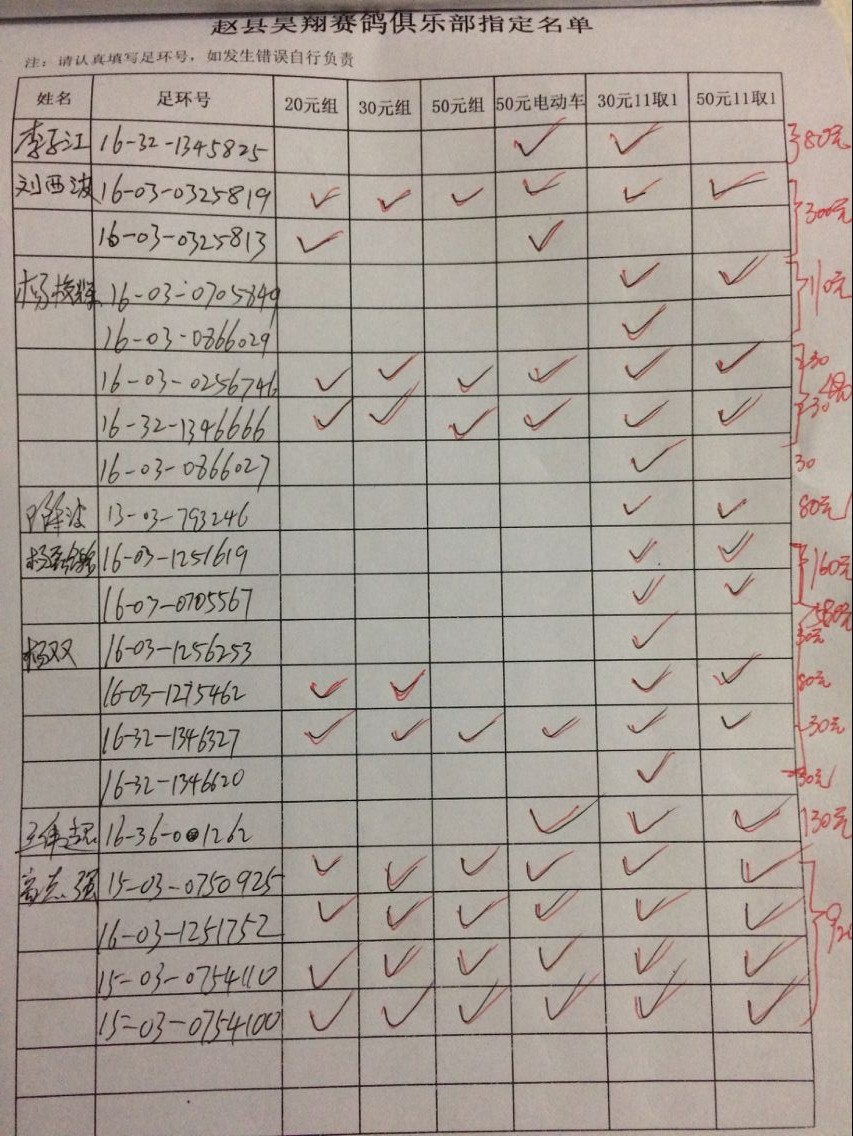 赵县昊翔赛鸽俱乐部指定名单
注：请认真填写足环号，如发生错误自行负责
姓名 足环号 20元组 30元组 50元组 50元电动车 30元11取1 50元11取1
16-32-1345825 ✓ ✓ 80元
刘西波 16-03-0325819 ✓ ✓ ✓ ✓ ✓ ✓ 300元
16-03-0325813 ✓ ✓
16-03-0705849 ✓ ✓ 110元
16-03-0866029 ✓
16-03-0256746 ✓ ✓ ✓ ✓ ✓ ✓ 230
16-32-1346666 ✓ ✓ ✓ ✓ ✓ ✓ 230
16-03-0866027 ✓ 30
13-03-793246 ✓ ✓ 80元
16-03-1251619 ✓ ✓ 160元
16-03-0705567 ✓ ✓ 580元
杨双 16-03-1256253 ✓ 30元
16-03-1275462 ✓ ✓ ✓ ✓ 80元
16-32-1346327 ✓ ✓ ✓ ✓ ✓ ✓ 30元
16-32-1346620 ✓ 30元
16-36-0 1262 ✓ ✓ ✓ 130元
高志强 15-03-0750925 ✓ ✓ ✓ ✓ ✓ ✓
16-03-1251752 ✓ ✓ ✓ ✓ ✓ ✓ 920
15-03-0754110 ✓ ✓ ✓ ✓ ✓ ✓
15-03-0754100 ✓ ✓ ✓ ✓ ✓ ✓